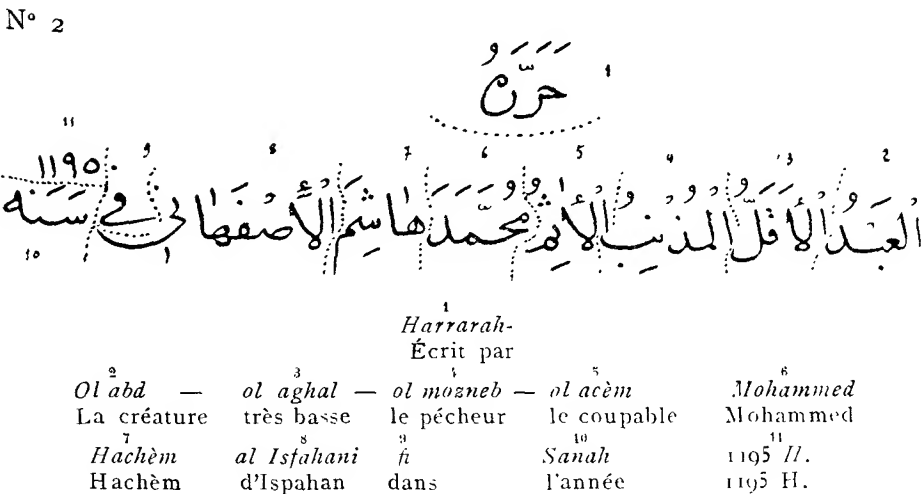 N° 2
1
حَرَّرَهُ
11 9 8 7 6 5 4 3 2
۱۱۹۵
الْعَبْدُ الْأَقَلُّ الْمُذْنِبُ الْأَثِمُ مُحَمَّدَ هَاشِمَ الْأَصْفَهَانِى فِي سَنَه
10 1
1
Harrarah-
Écrit par
2 3 4 5 6
Ol abd — ol aghal — ol mozneb — ol acèm Mohammed
La créature très basse le pécheur le coupable Mohammed
7 8 9 10 11
Hachèm al Isfahani fi Sanah 1195 H.
Hachèm d'Ispahan dans l'année 1195 H.